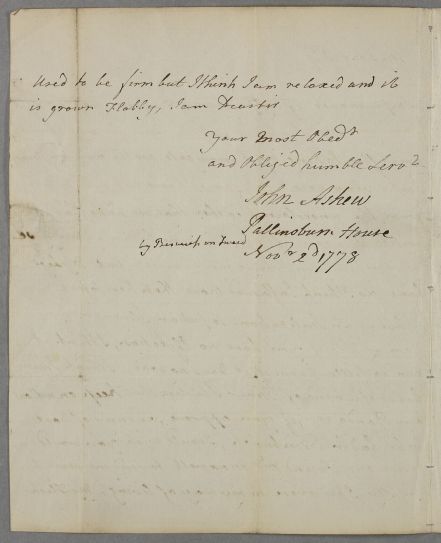 Used to be firm but I think I am relaxed and it
is grown Flabby, I am Dear Sir
Your Most Obedt
and Obliged humble Servt
John Askew
Pallinsburn House
by Berwick on Tweed
Novr 2d 1778